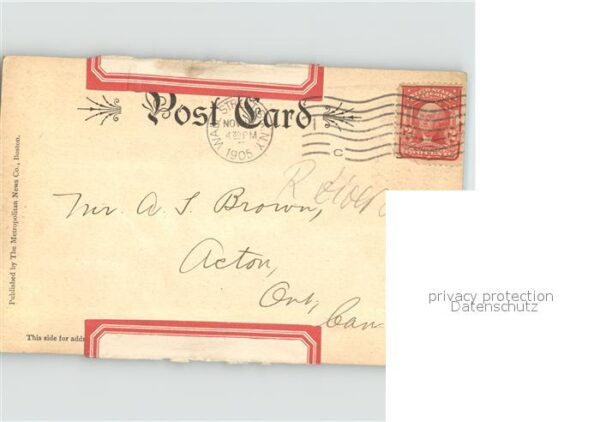 Post Card
WALL STREET STA. N.Y.
NOV
4 30 PM
1905
C
Mr. A. S. Brown,
Acton,
Ont,
Can
Published by The Metropolitan News Co., Boston.
This side for addr
privacy protection
Datenschutz